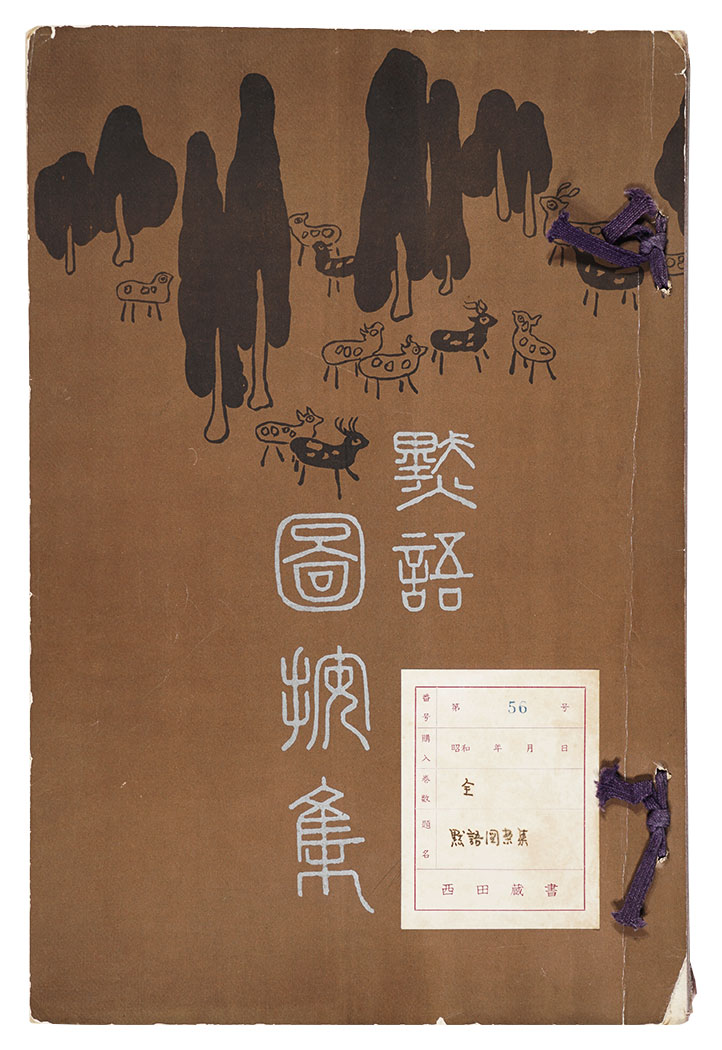 黙語
圖按集
番号 第 56 号
購入 昭和 年 月 日
巻数 全
題名 黙語図案集
西田蔵書